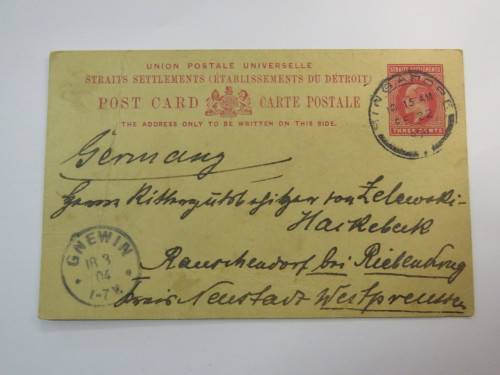 UNION POSTALE UNIVERSELLE
STRAITS SETTLEMENTS (ÉTABLISSEMENTS DU DÉTROIT)
POST CARD CARTE POSTALE
THE ADDRESS ONLY TO BE WRITTEN ON THIS SIDE.
STRAITS SETTLEMENTS
THREE CENTS
SINGAPORE
15 AM
Germany
Herrn Rittergutsbesitzer von Zelewski-
Hackebeck
Rauschendorf bei Riebenkrug
Kreis Neustadt Westpreussen
GNEWIN
18 3
04
1-7 V.